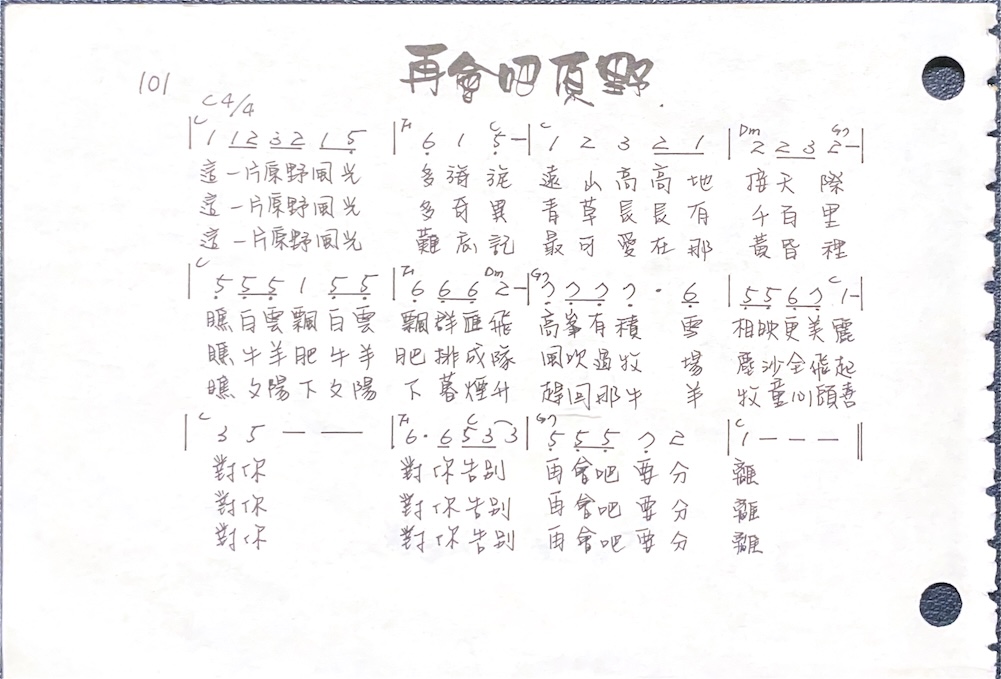 101
再會吧原野
C 4/4
|C 1 1 2 3 2 1 5 |F 6 1 C 5 – |C 1 2 3 2 1 |Dm 2 2 3 G7 2 – |
這一片原野風光 多旖旎 遠山高高地 接天際
這一片原野風光 多奇異 青草長長有 千百里
這一片原野風光 難忘記 最可愛在那 黃昏裡
|C 5 5 5 1 5 5 |F 6 6 6 Dm 2 – |G7 7 7 7 7 · 6 |5 5 6 7 C 1 – |
瞧白雲飄白雲 飄群匯飛 高峯有積 雪 相映更美麗
瞧牛羊肥牛羊 肥排成隊 風吹過牧 場 塵沙全飛起
瞧夕陽下夕陽 下暮煙升 趕回那牛 羊 牧童心頭喜
|C 3 5 – – |F 6 · 6 C 5 3 3 |G7 5 5 5 7 2 |C 1 – – – ||
對你 對你告別 再會吧要分 離
對你 對你告別 再會吧要分 離
對你 對你告別 再會吧要分 離